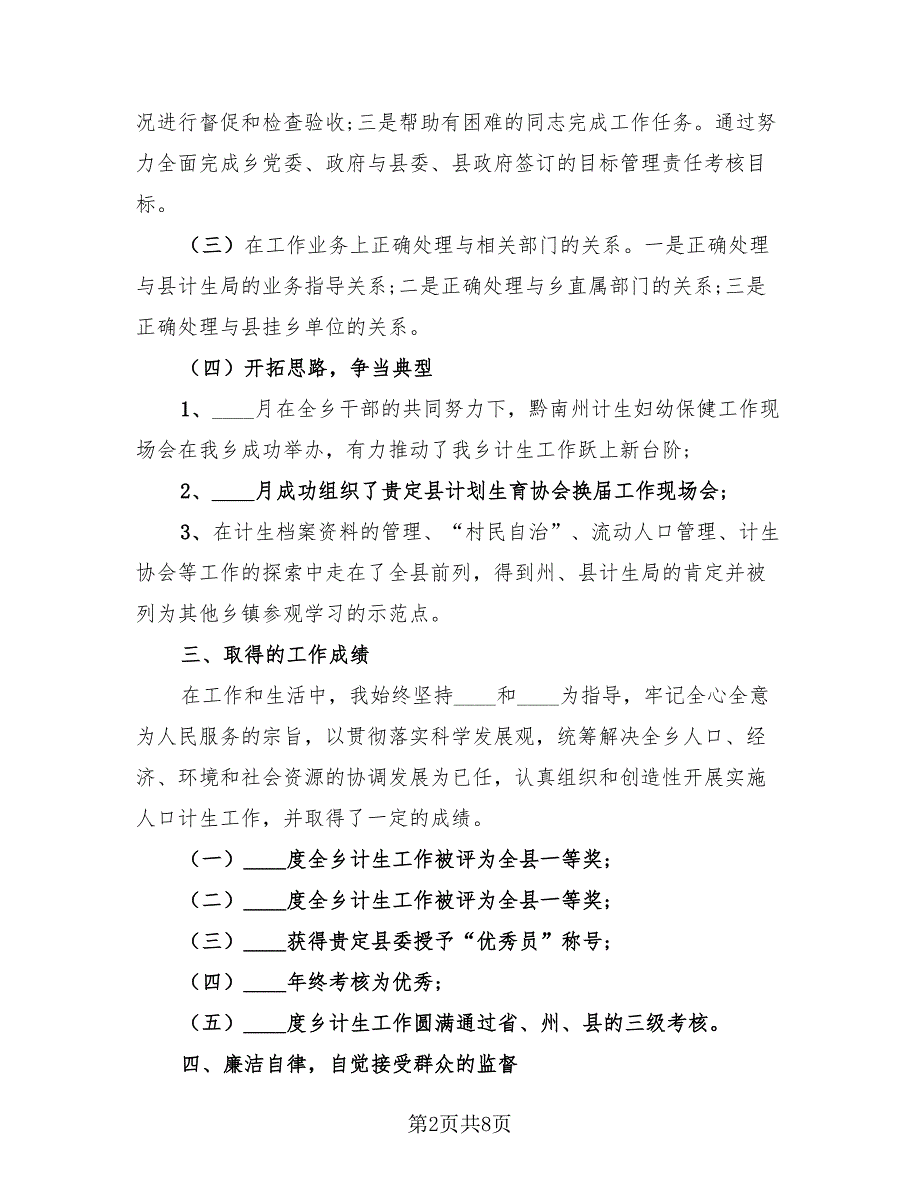 况进行督促和检查验收;三是帮助有困难的同志完成工作任务。通过努
力全面完成乡党委、政府与县委、县政府签订的目标管理责任考核目
标。
（三）在工作业务上正确处理与相关部门的关系。一是正确处理
与县计生局的业务指导关系;二是正确处理与乡直属部门的关系;三是
正确处理与县挂乡单位的关系。
（四）开拓思路，争当典型
1、____月在全乡干部的共同努力下，黔南州计生妇幼保健工作现
场会在我乡成功举办，有力推动了我乡计生工作跃上新台阶;
2、____月成功组织了贵定县计划生育协会换届工作现场会;
3、在计生档案资料的管理、“村民自治”、流动人口管理、计生
协会等工作的探索中走在了全县前列，得到州、县计生局的肯定并被
列为其他乡镇参观学习的示范点。
三、取得的工作成绩
在工作和生活中，我始终坚持____和____为指导，牢记全心全意
为人民服务的宗旨，以贯彻落实科学发展观，统筹解决全乡人口、经
济、环境和社会资源的协调发展为已任，认真组织和创造性开展实施
人口计生工作，并取得了一定的成绩。
（一）____度全乡计生工作被评为全县一等奖;
（二）____度全乡计生工作被评为全县一等奖;
（三）____获得贵定县委授予“优秀员”称号;
（四）____年终考核为优秀;
（五）____度乡计生工作圆满通过省、州、县的三级考核。
四、廉洁自律，自觉接受群众的监督
第2页共8页